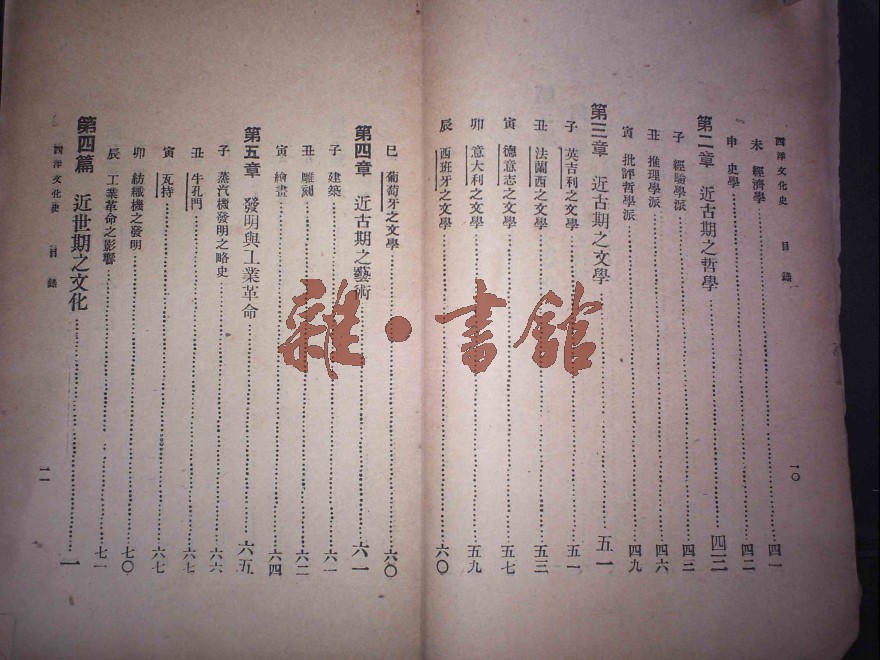 西洋文化史 目錄 一〇
未 經濟學 四一
申 史學 四二
第二章 近古期之哲學 四二
子 經驗學派 四三
丑 推理學派 四六
寅 批評哲學派 四九
第三章 近古期之文學 五一
子 英吉利之文學 五一
丑 法蘭西之文學 五三
寅 德意志之文學 五七
卯 意大利之文學 五九
辰 西班牙之文學 六〇
巳 葡萄牙之文學 六〇
第四章 近古期之藝術 六一
子 建築 六一
丑 雕刻 六二
寅 繪畫 六四
第五章 發明與工業革命 六五
子 蒸汽機發明之略史 六六
丑 牛孔門 六七
寅 瓦持 六七
卯 紡織機之發明 七〇
辰 工業革命之影響 七一
第四篇 近世期之文化 一
西洋文化史 目錄 一一
雜·書館